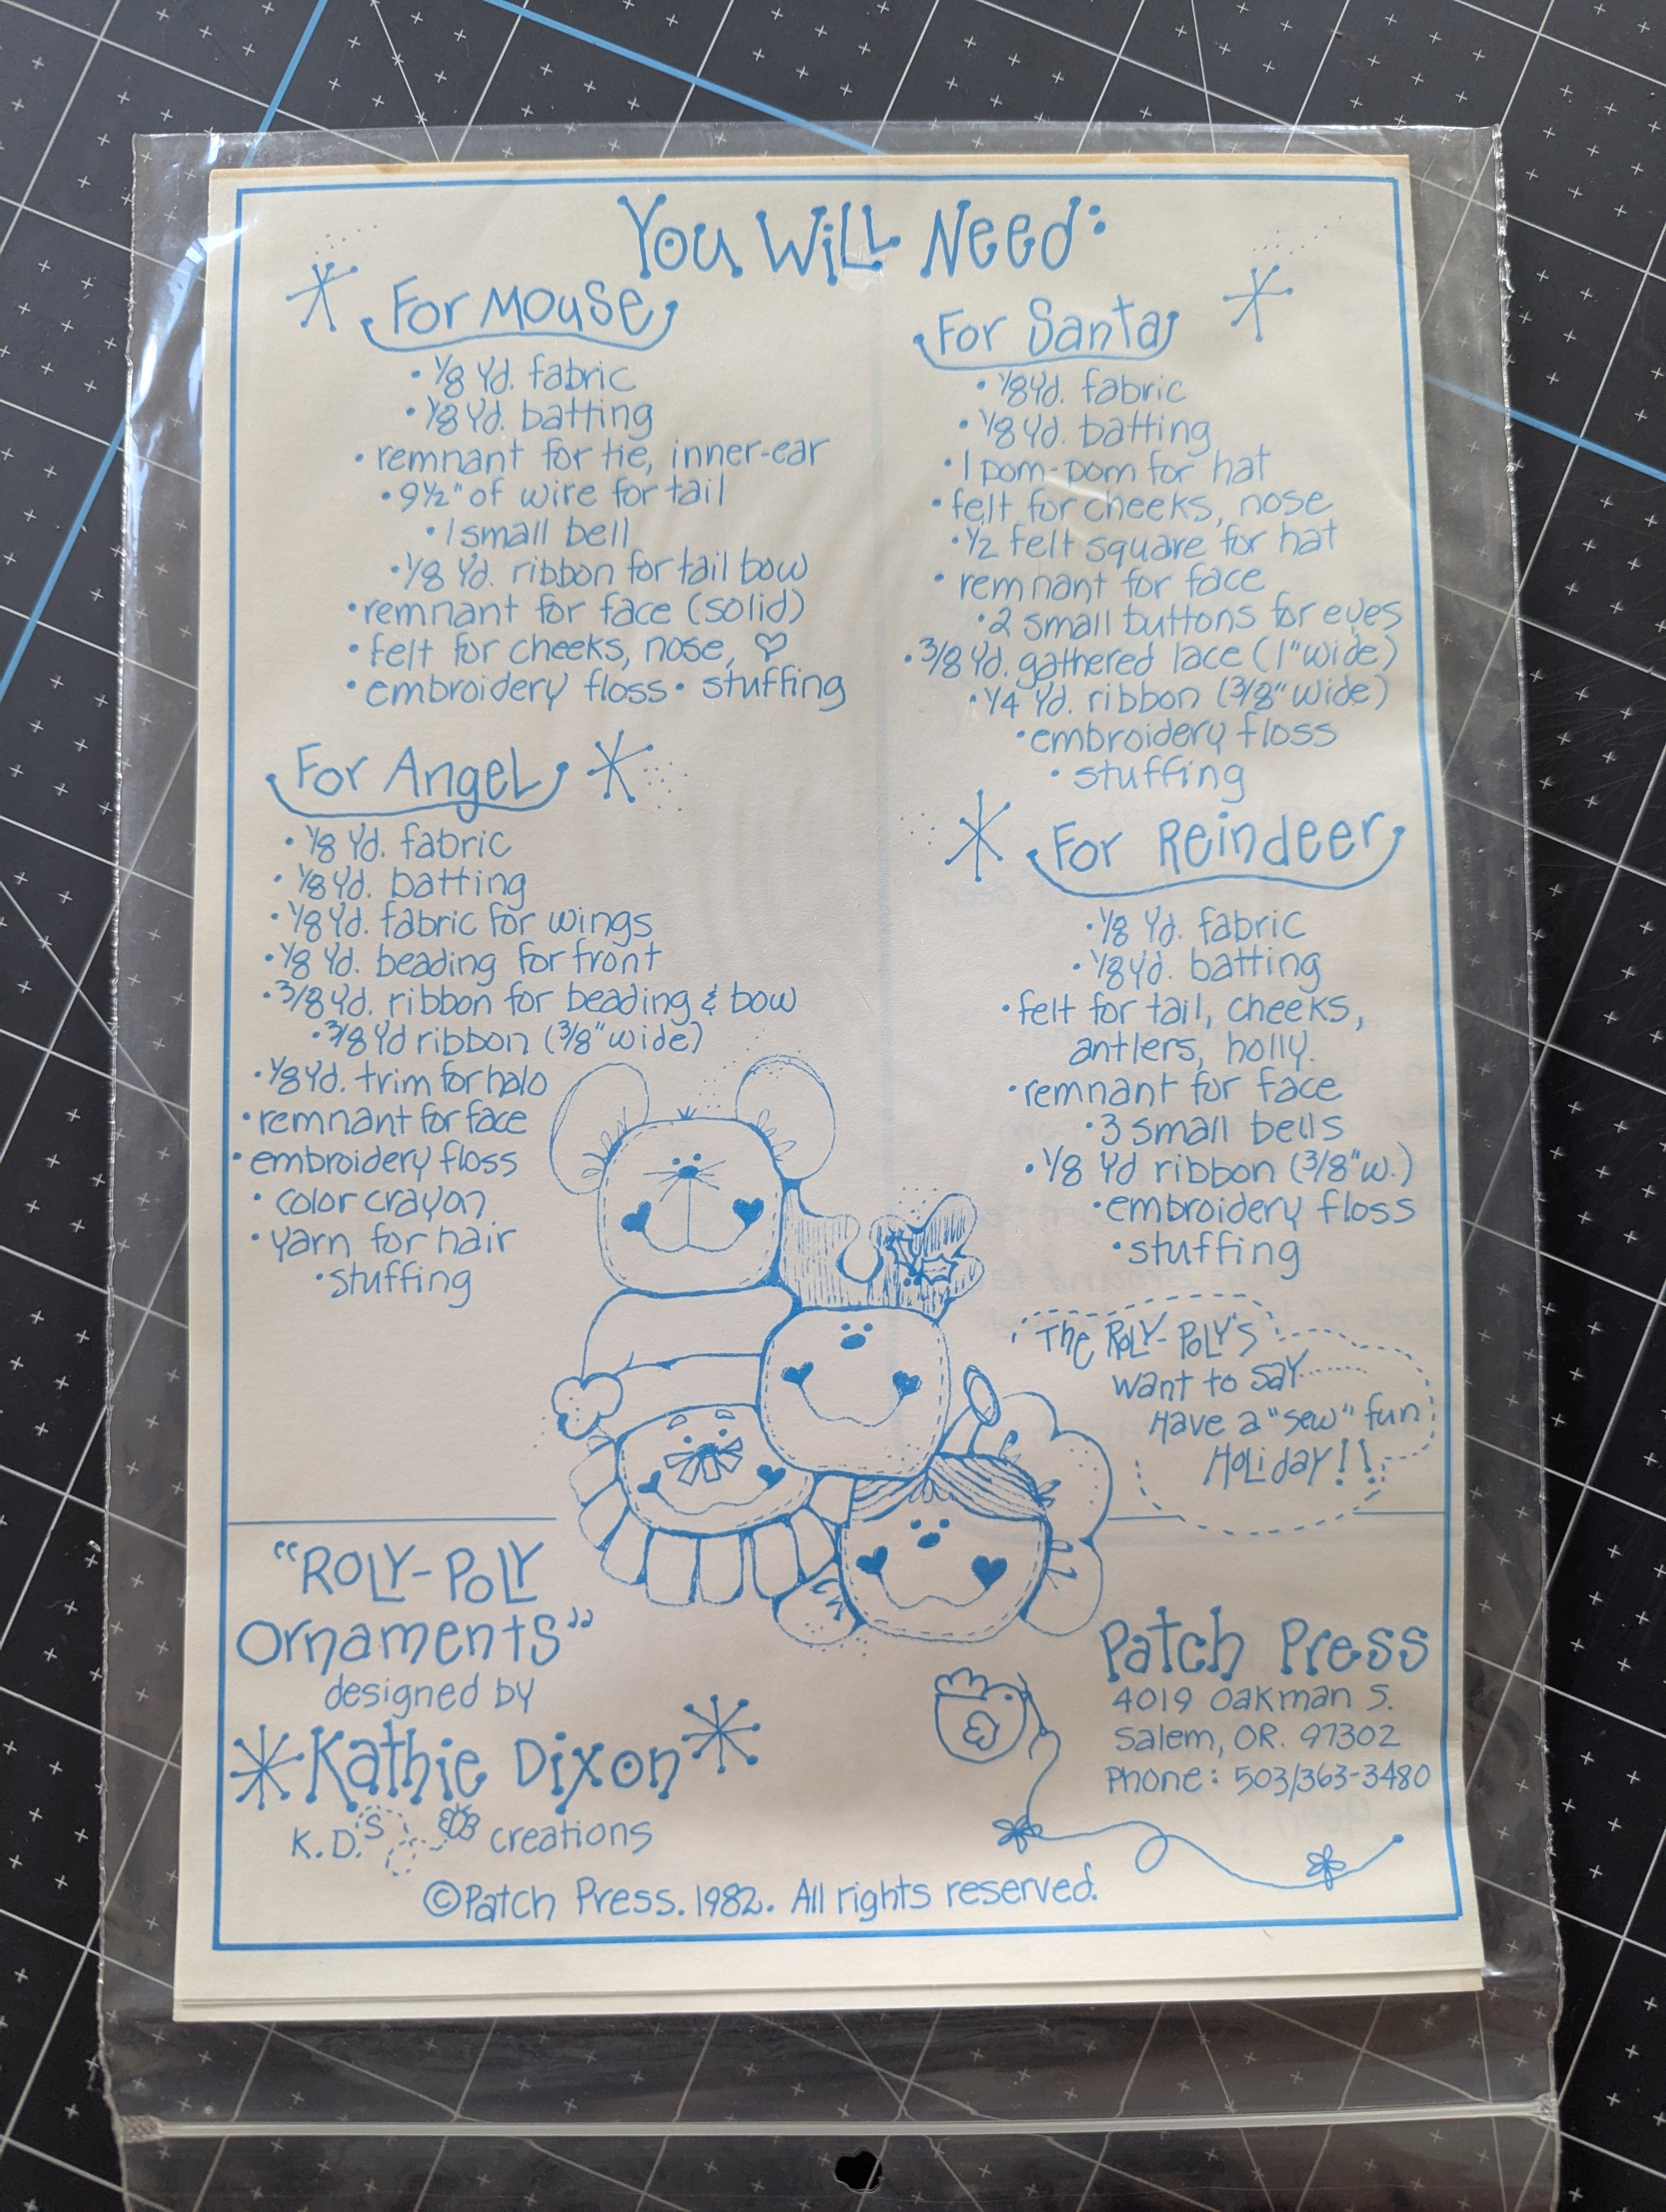 You Will Need:
For Mouse
• 1/8 Yd. fabric
• 1/8 Yd. batting
• remnant for tie, inner-ear
• 9½" of wire for tail
• 1 small bell
• 1/8 Yd. ribbon for tail bow
• remnant for face (solid)
• felt for cheeks, nose, ♡
• embroidery floss • stuffing
For Angel
• 1/8 Yd. fabric
• 1/8 Yd. batting
• 1/8 Yd. fabric for wings
• 1/8 Yd. beading for front
• 3/8 Yd. ribbon for beading & bow
• 3/8 Yd ribbon (3/8" wide)
• 1/8 Yd. trim for halo
• remnant for face
• embroidery floss
• color crayon
• yarn for hair
• stuffing
For Santa
• 1/8 Yd. fabric
• 1/8 Yd. batting
• 1 pom-pom for hat
• felt for cheeks, nose
• 1/2 felt square for hat
• remnant for face
• 2 small buttons for eyes
• 3/8 Yd. gathered lace (1" wide)
• 1/4 Yd. ribbon (3/8" wide)
• embroidery floss
• stuffing
For Reindeer
• 1/8 Yd. fabric
• 1/8 Yd. batting
• felt for tail, cheeks,
antlers, holly.
• remnant for face
• 3 small bells
• 1/8 Yd ribbon (3/8" w.)
• embroidery floss
• stuffing
The Roly-Poly's
want to say......
Have a "sew" fun
Holiday!!
"Roly-Poly
Ornaments"
designed by
Kathie Dixon
K.D.'s creations
Patch Press
4019 Oakman S.
Salem, OR. 97302
Phone: 503/363-3480
©Patch Press. 1982. All rights reserved.